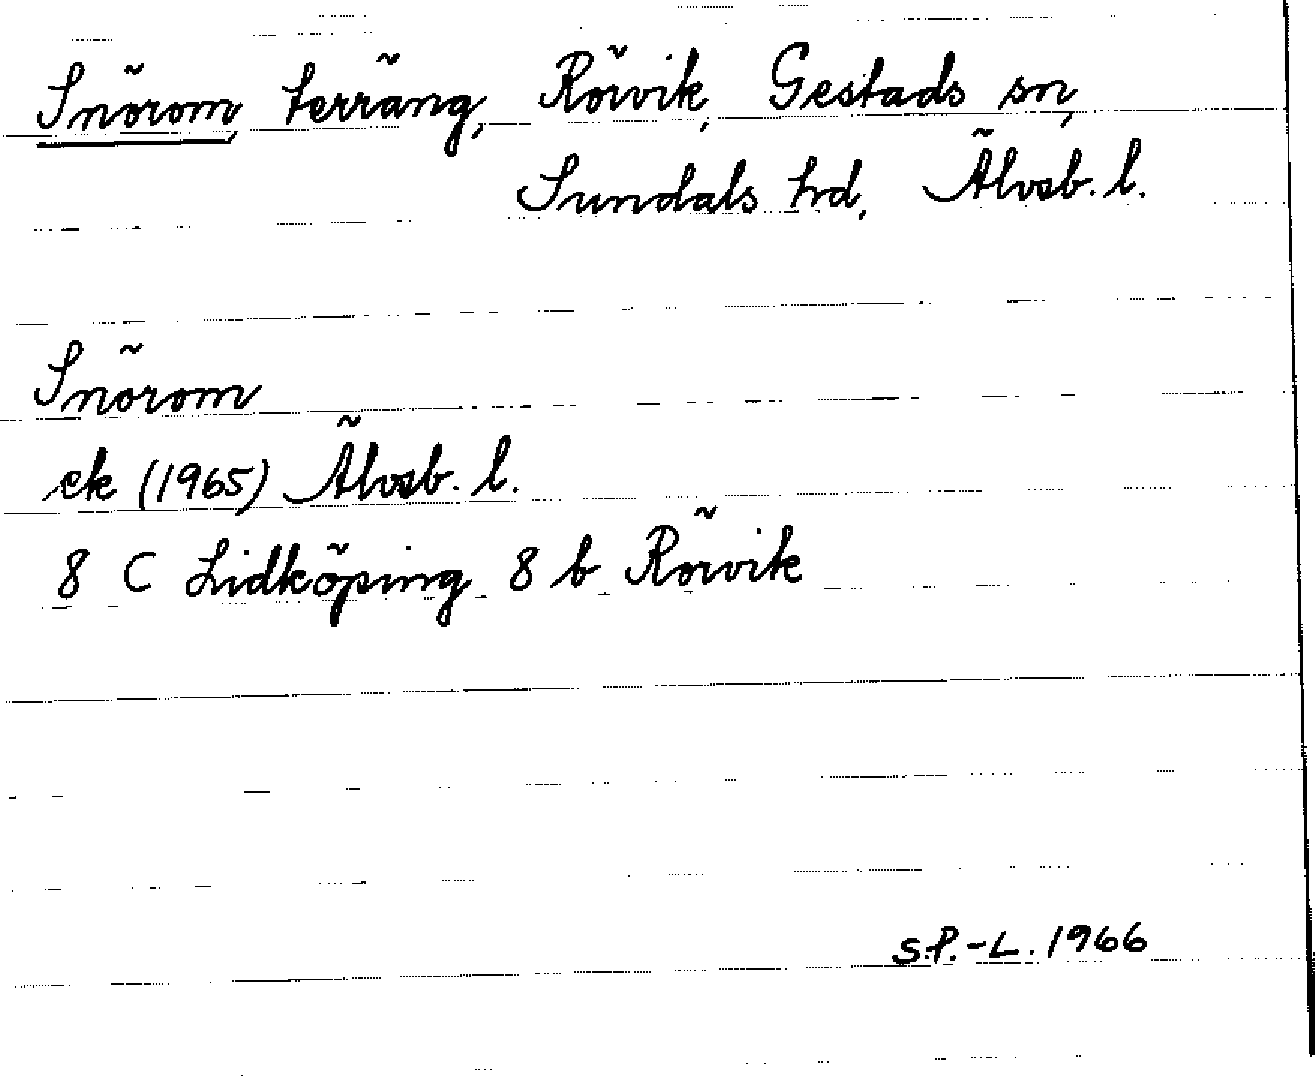 Snörom, terräng, Rörvik, Gestads sn,
Sundals hd, Älvsb. l.
Snörom
ek (1965) Älvsb. l.
8 C Lidköping 8 b Rörvik
S.P.-L. 1966